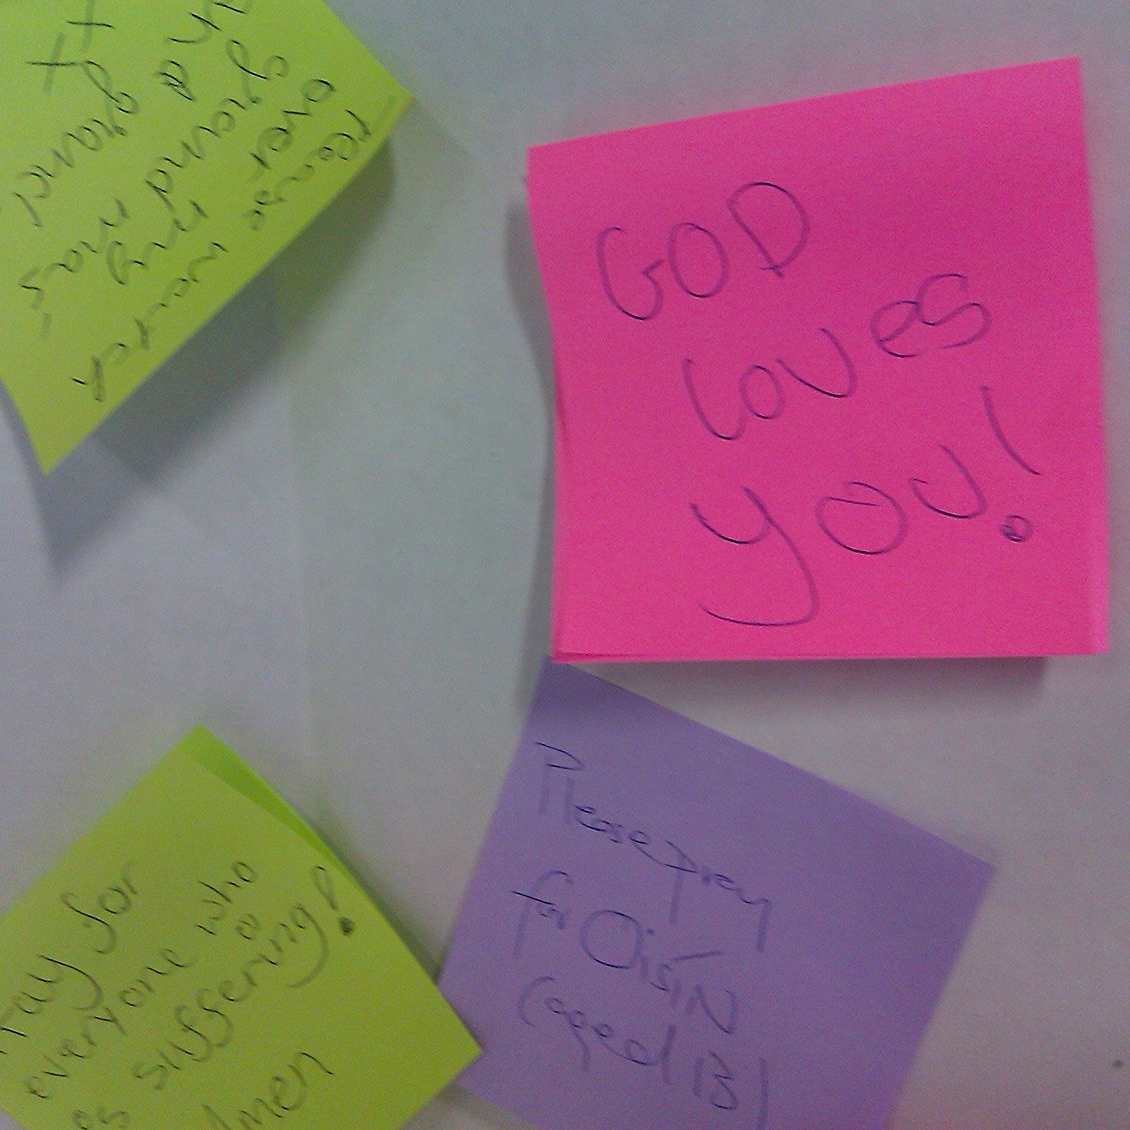 please watch
over my
ground mas
and
grand
xx
GOD
Loves
you!
Please pray
for Oisín
(aged 13)
Pray for
everyone who
is suffering!
Amen